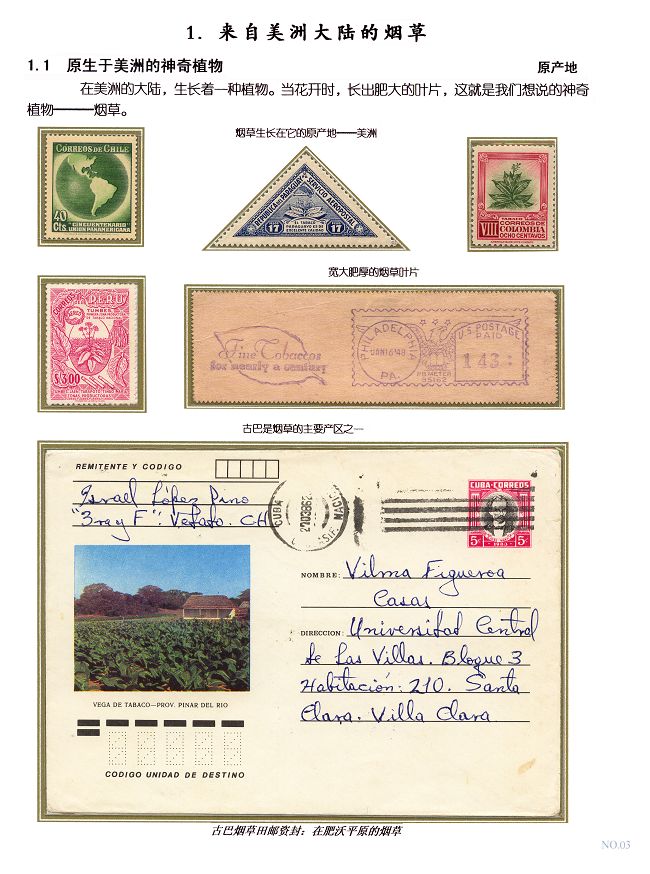 1. 来自美洲大陆的烟草
1.1 原生于美洲的神奇植物
原产地
在美洲的大陆，生长着一种植物。当花开时，长出肥大的叶片，这就是我们想说的神奇
植物———烟草。
烟草生长在它的原产地——美洲
CORREOS DE CHILE
40
Cts.
CINCUENTENARIO
UNION PANAMERICANA
REPUBLICA DEL PARAGUAY
SERVICIO AEROPOSTAL
EL TABACO
PARAGUAYO ES DE
EXCELENTE CALIDAD
17
17
TABACO
VIII
CORREOS DE
COLOMBIA
OCHO CENTAVOS
宽大肥厚的烟草叶片
CORREOS
PERU
TUMBES
S/3.00
Fine Tobaccos
for nearly a century
PHILADELPHIA
JAN 16'48
PA.
U.S. POSTAGE
PAID
143
PB METER
35162
古巴是烟草的主要产区之一
REMITENTE Y CODIGO
Israel López Pino
"3ra y F": Vedado. C.H
CUBA
CUBA·CORREOS
5¢
5¢
NOMBRE:
Vilma Figueroa
Casas
DIRECCION:
Universidad Central
de Las Villas. Bloque 3
Habitación: 210. Santa
Clara. Villa Clara
VEGA DE TABACO—PROV. PINAR DEL RIO
CODIGO UNIDAD DE DESTINO
古巴烟草田邮资封：在肥沃平原的烟草
NO.03